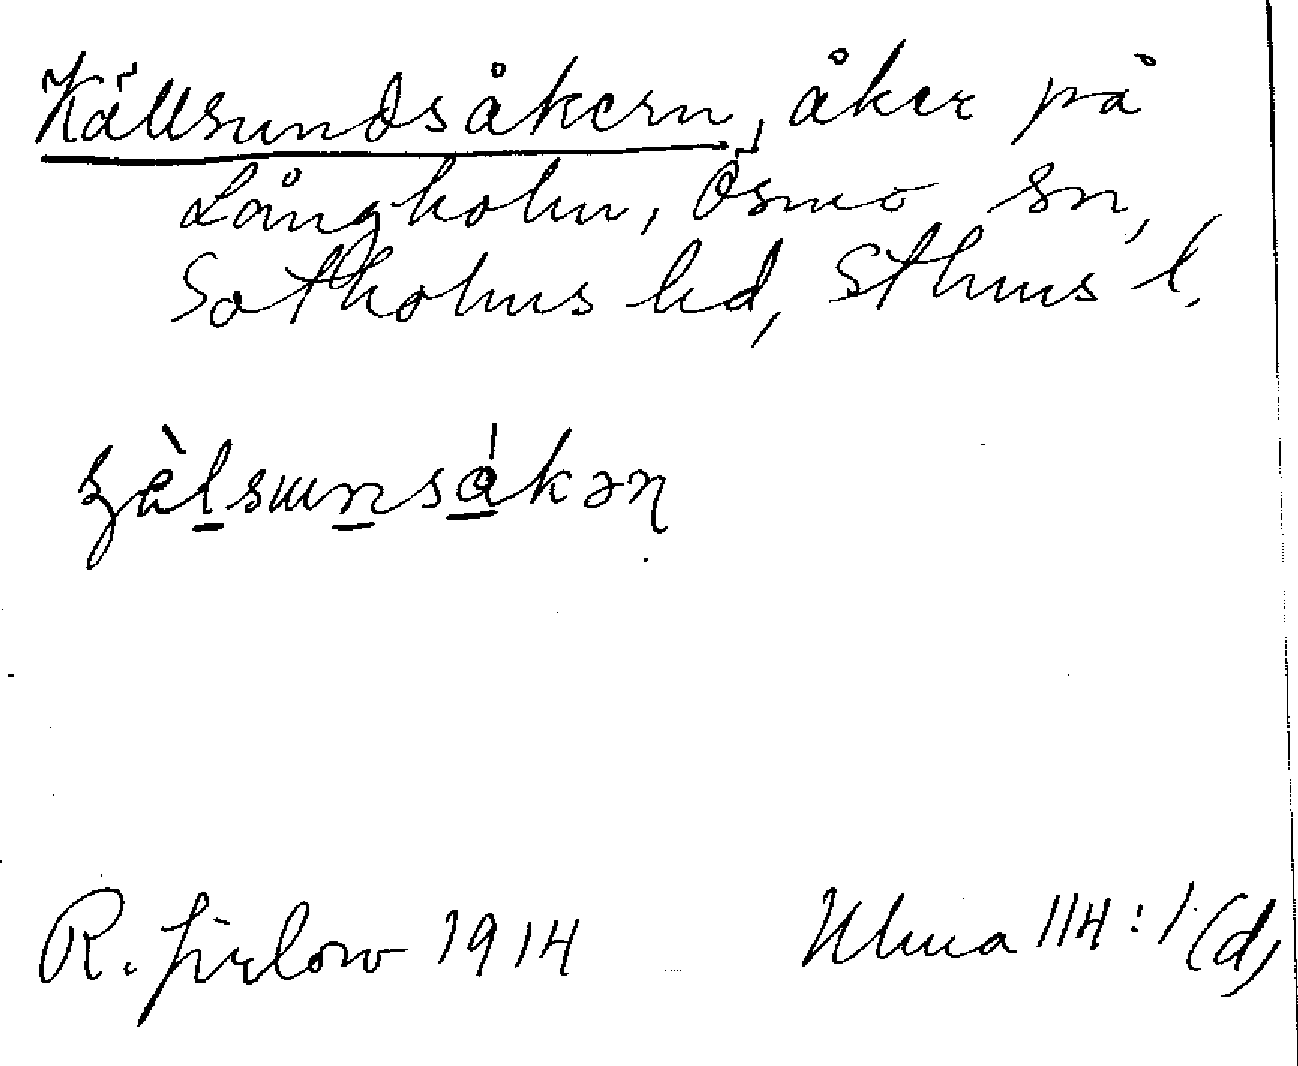 Källsundsåkern, åker på
Långholm, Ösmo sn,
Sotholms hd, Sthms l.
R. Jirlow 1914
Ulma 114:1(d)